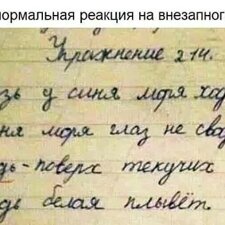 нормальная реакция на внезапног
Упражнение 214.
зь у синя моря ход
ня моря глаз не свод
дь - поверх текучих
дь белая плывёт